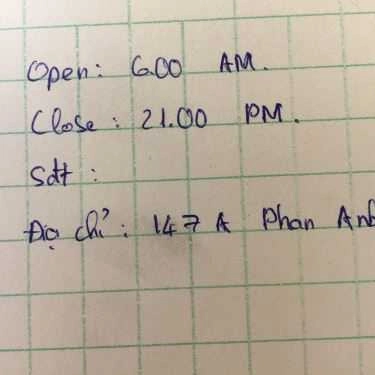 Open: 6.00 AM.
Close: 21.00 PM.
Sdt:
Địa chỉ: 147 A Phan Anh